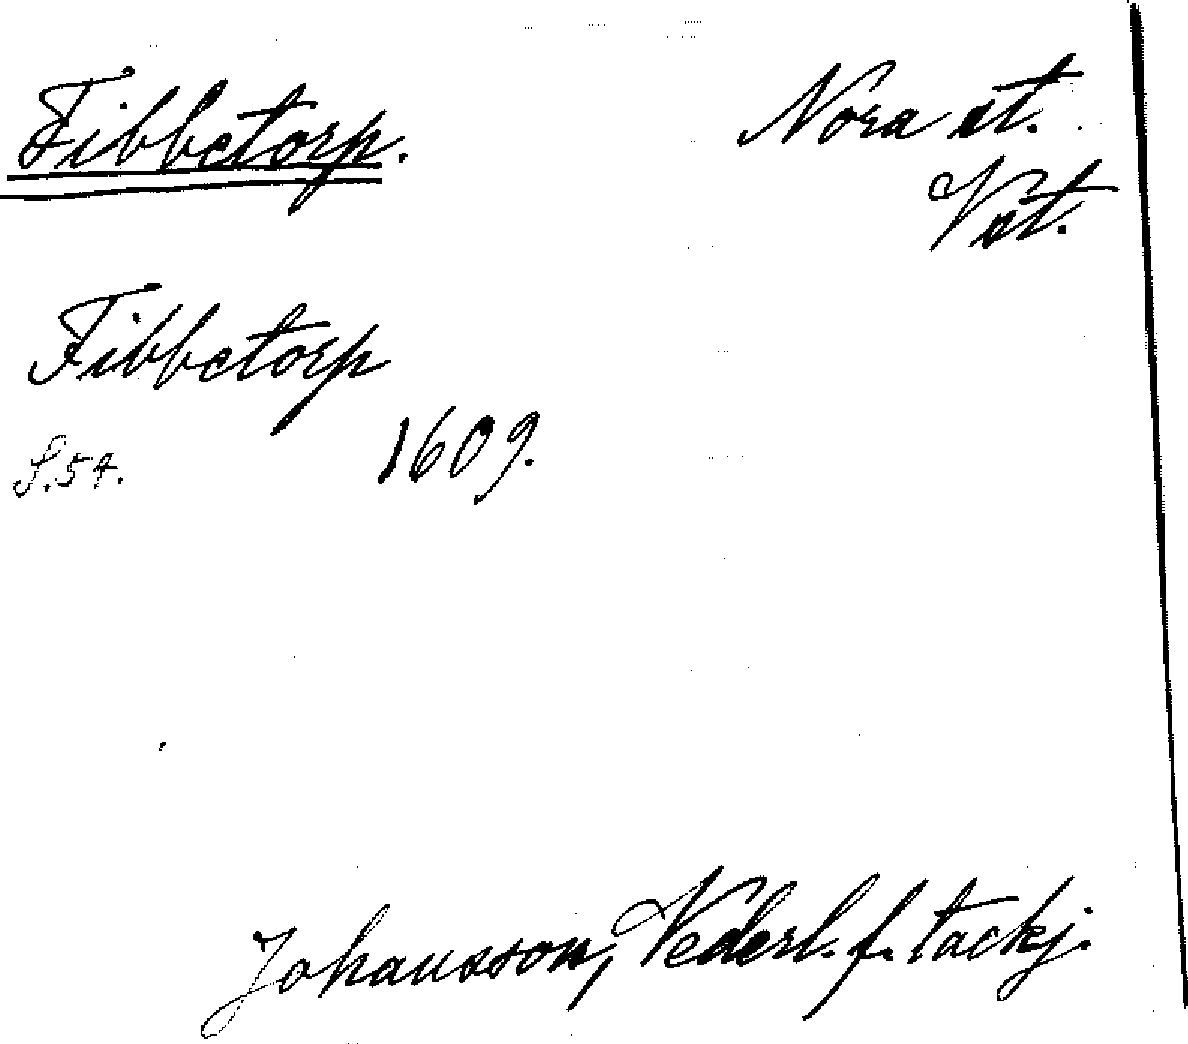 Fibbetorp.
Nora st.
Vst.
Fibbetorp
1609.
S. 54.
Johansson, Vederl. f. tackj.